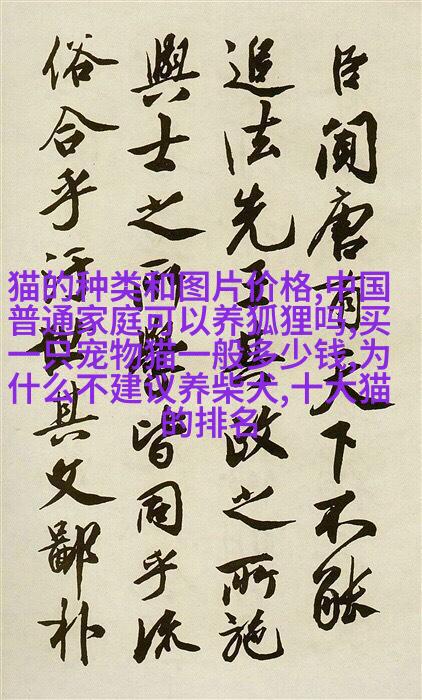 臣聞唐有天下不能
追法先王其政之所施
與士之所聚皆同乎流
俗合乎汙世其文鄙朴
猫的种类和图片价格,中国
普通家庭可以养狐狸吗,买
一只宠物猫一般多少钱,为
什么不建议养柴犬,十大猫
的排名